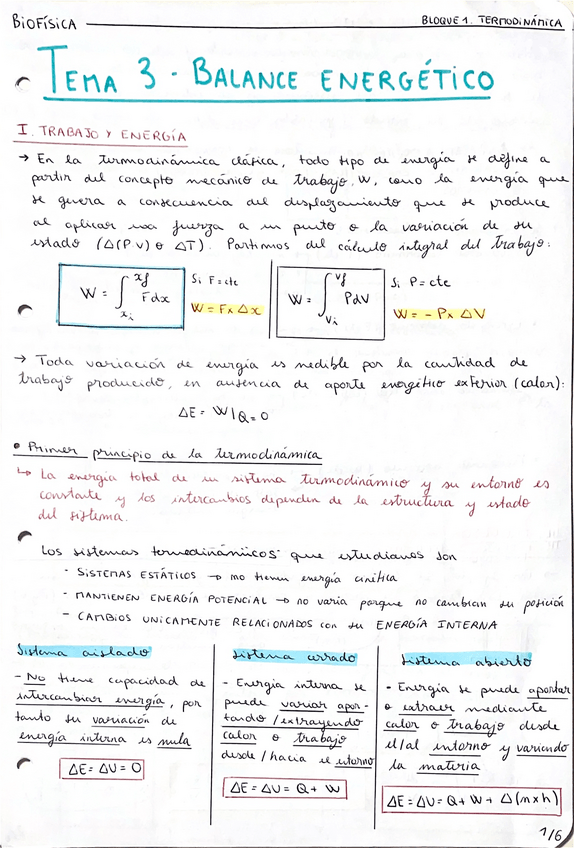 BIOFÍSICA
BLOQUE 1. TERMODINÁMICA
TEMA 3 - BALANCE ENERGÉTICO
I. TRABAJO Y ENERGÍA
→ En la termodinámica clásica, todo tipo de energía se define a
partir del concepto mecánico de trabajo, W, como la energía que
se genera a consecuencia del desplazamiento que se produce
al aplicar una fuerza a un punto o la variación de su
estado (Δ(P v) o ΔT). Partimos del cálculo integral del trabajo:
W = ∫ xi xf F dx
Si F = cte
W = F x Δx
W = ∫ vi vf P dV
Si P = cte
W = - P x ΔV
→ Toda variación de energía es medible por la cantidad de
trabajo producido, en ausencia de aporte energético exterior (calor):
ΔE = W|Q=0
• Primer principio de la termodinámica
↳ La energía total de un sistema termodinámico y su entorno es
constante y los intercambios dependen de la estructura y estado
del sistema.
Los sistemas termodinámicos que estudiamos son
- SISTEMAS ESTÁTICOS → no tienen energía cinética
- MANTIENEN ENERGÍA POTENCIAL → no varía porque no cambian su posición
- CAMBIOS UNICAMENTE RELACIONADOS con su ENERGÍA INTERNA
Sistema aislado
- No tiene capacidad de
intercambiar energía, por
tanto su variación de
energía interna es nula
ΔE = ΔU = 0
Sistema cerrado
- Energía interna se
puede variar apor-
tando / extrayendo
calor o trabajo
desde / hacia el entorno
ΔE = ΔU = Q + W
Sistema abierto
- Energía se puede aportar
o extraer mediante
calor o trabajo desde
el/al entorno y variando
la materia
ΔE = ΔU = Q + W + Δ(m x h)
1/6